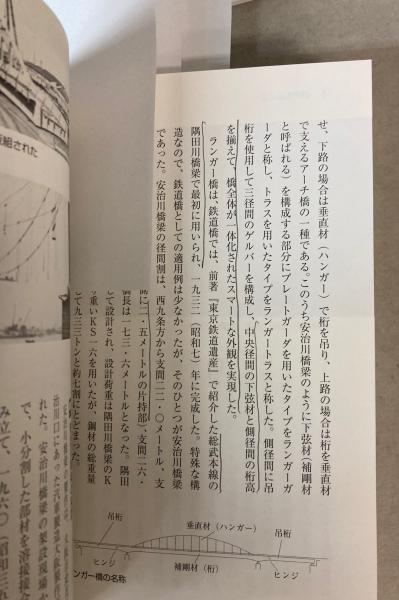 せ、下路の場合は垂直材（ハンガー）で桁を吊り、上路の場合は桁を垂直材
で支えるアーチ橋の一種である。このうち安治川橋梁のように下弦材（補剛材
と呼ばれる）を構成する部分にプレートガーダを用いたタイプをランガーガ
ーダと称し、トラスを用いたタイプをランガートラスと称した。側径間に吊
桁を使用して三径間のゲルバーを構成し、中央径間の下弦材と側径間の桁高
を揃えて、橋全体が一体化されたスマートな外観を実現した。
ランガー橋は、鉄道橋では、前著『東京鉄道遺産』で紹介した総武本線の
隅田川橋梁で最初に用いられ、一九三二（昭和七）年に完成した。特殊な構
造なので、鉄道橋としての適用例は少なかったが、そのひとつが安治川橋梁
であった。安治川橋梁の径間割は、西九条方から支間二二・〇メートル、支
間に二・五メートルの片持部、支間二六・
橋長は一七三・六メートルとなった。隅田
して設計され、設計荷重は隅田川橋梁のK
重いKS一六を用いたが、鋼材の総重量
て九三三トンと約七割にとどまった。
吊桁
垂直材（ハンガー）
吊桁
ヒンジ
補剛材（桁）
ヒンジ
ンガー橋の名称
組された
れた。安治川橋梁の架設現場
で、小分割した部材を溶接接合
み立て、一九六〇（昭和三